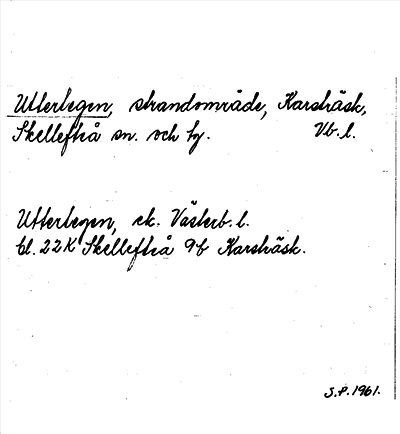 Utterlegen, strandområde, Karsträsk,
Skellefteå sn. och hg. Vb. l.
Utterlegen, ek. Västerb. l.
bl. 22K Skellefteå 9b Karsträsk.
S.P. 1961.